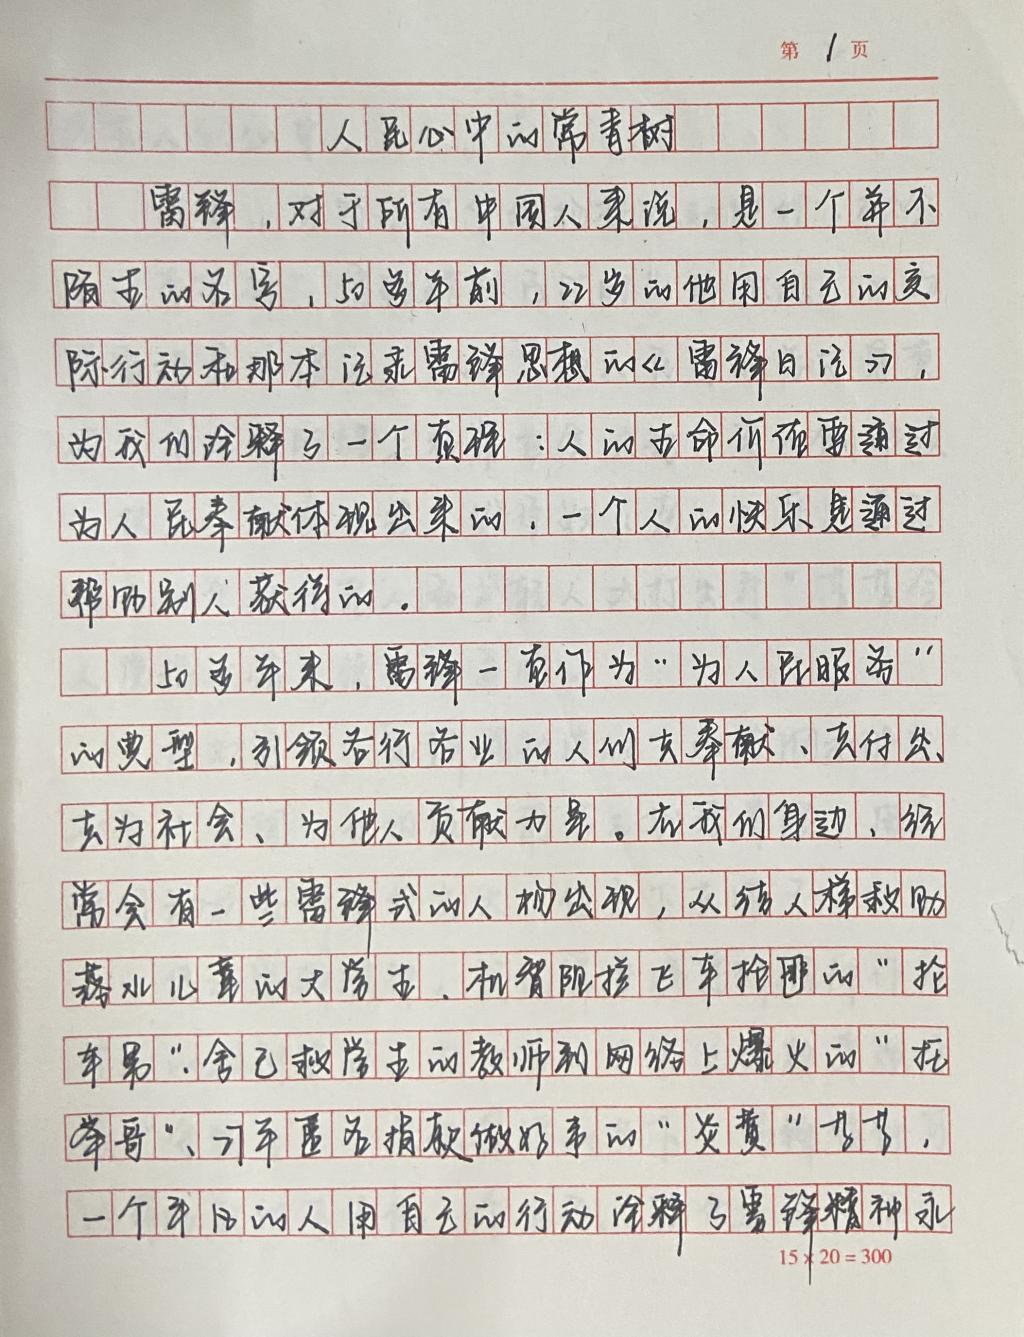 第1页
人民心中的常青树
雷锋，对于所有中国人来说，是一个并不
陌生的名字，50多年前，22岁的他用自己的实
际行动和那本记录雷锋思想的《雷锋日记》，
为我们诠释了一个真理：人的生命价值要通过
为人民奉献体现出来的，一个人的快乐是通过
帮助别人获得的。
50多年来，雷锋一直作为“为人民服务”
的典型，引领各行各业的人们去奉献、去付出、
去为社会、为他人贡献力量。在我们身边，经
常会有一些雷锋式的人物出现，从结人梯救助
落水儿童的大学生、机智阻拦飞车抢匪的“抡
车男”、舍己救学生的教师到网络上爆火的“托
举哥”、27年匿名捐款做好事的“炎黄”爷爷，
一个平凡的人用自己的行动诠释了雷锋精神永
15×20=300